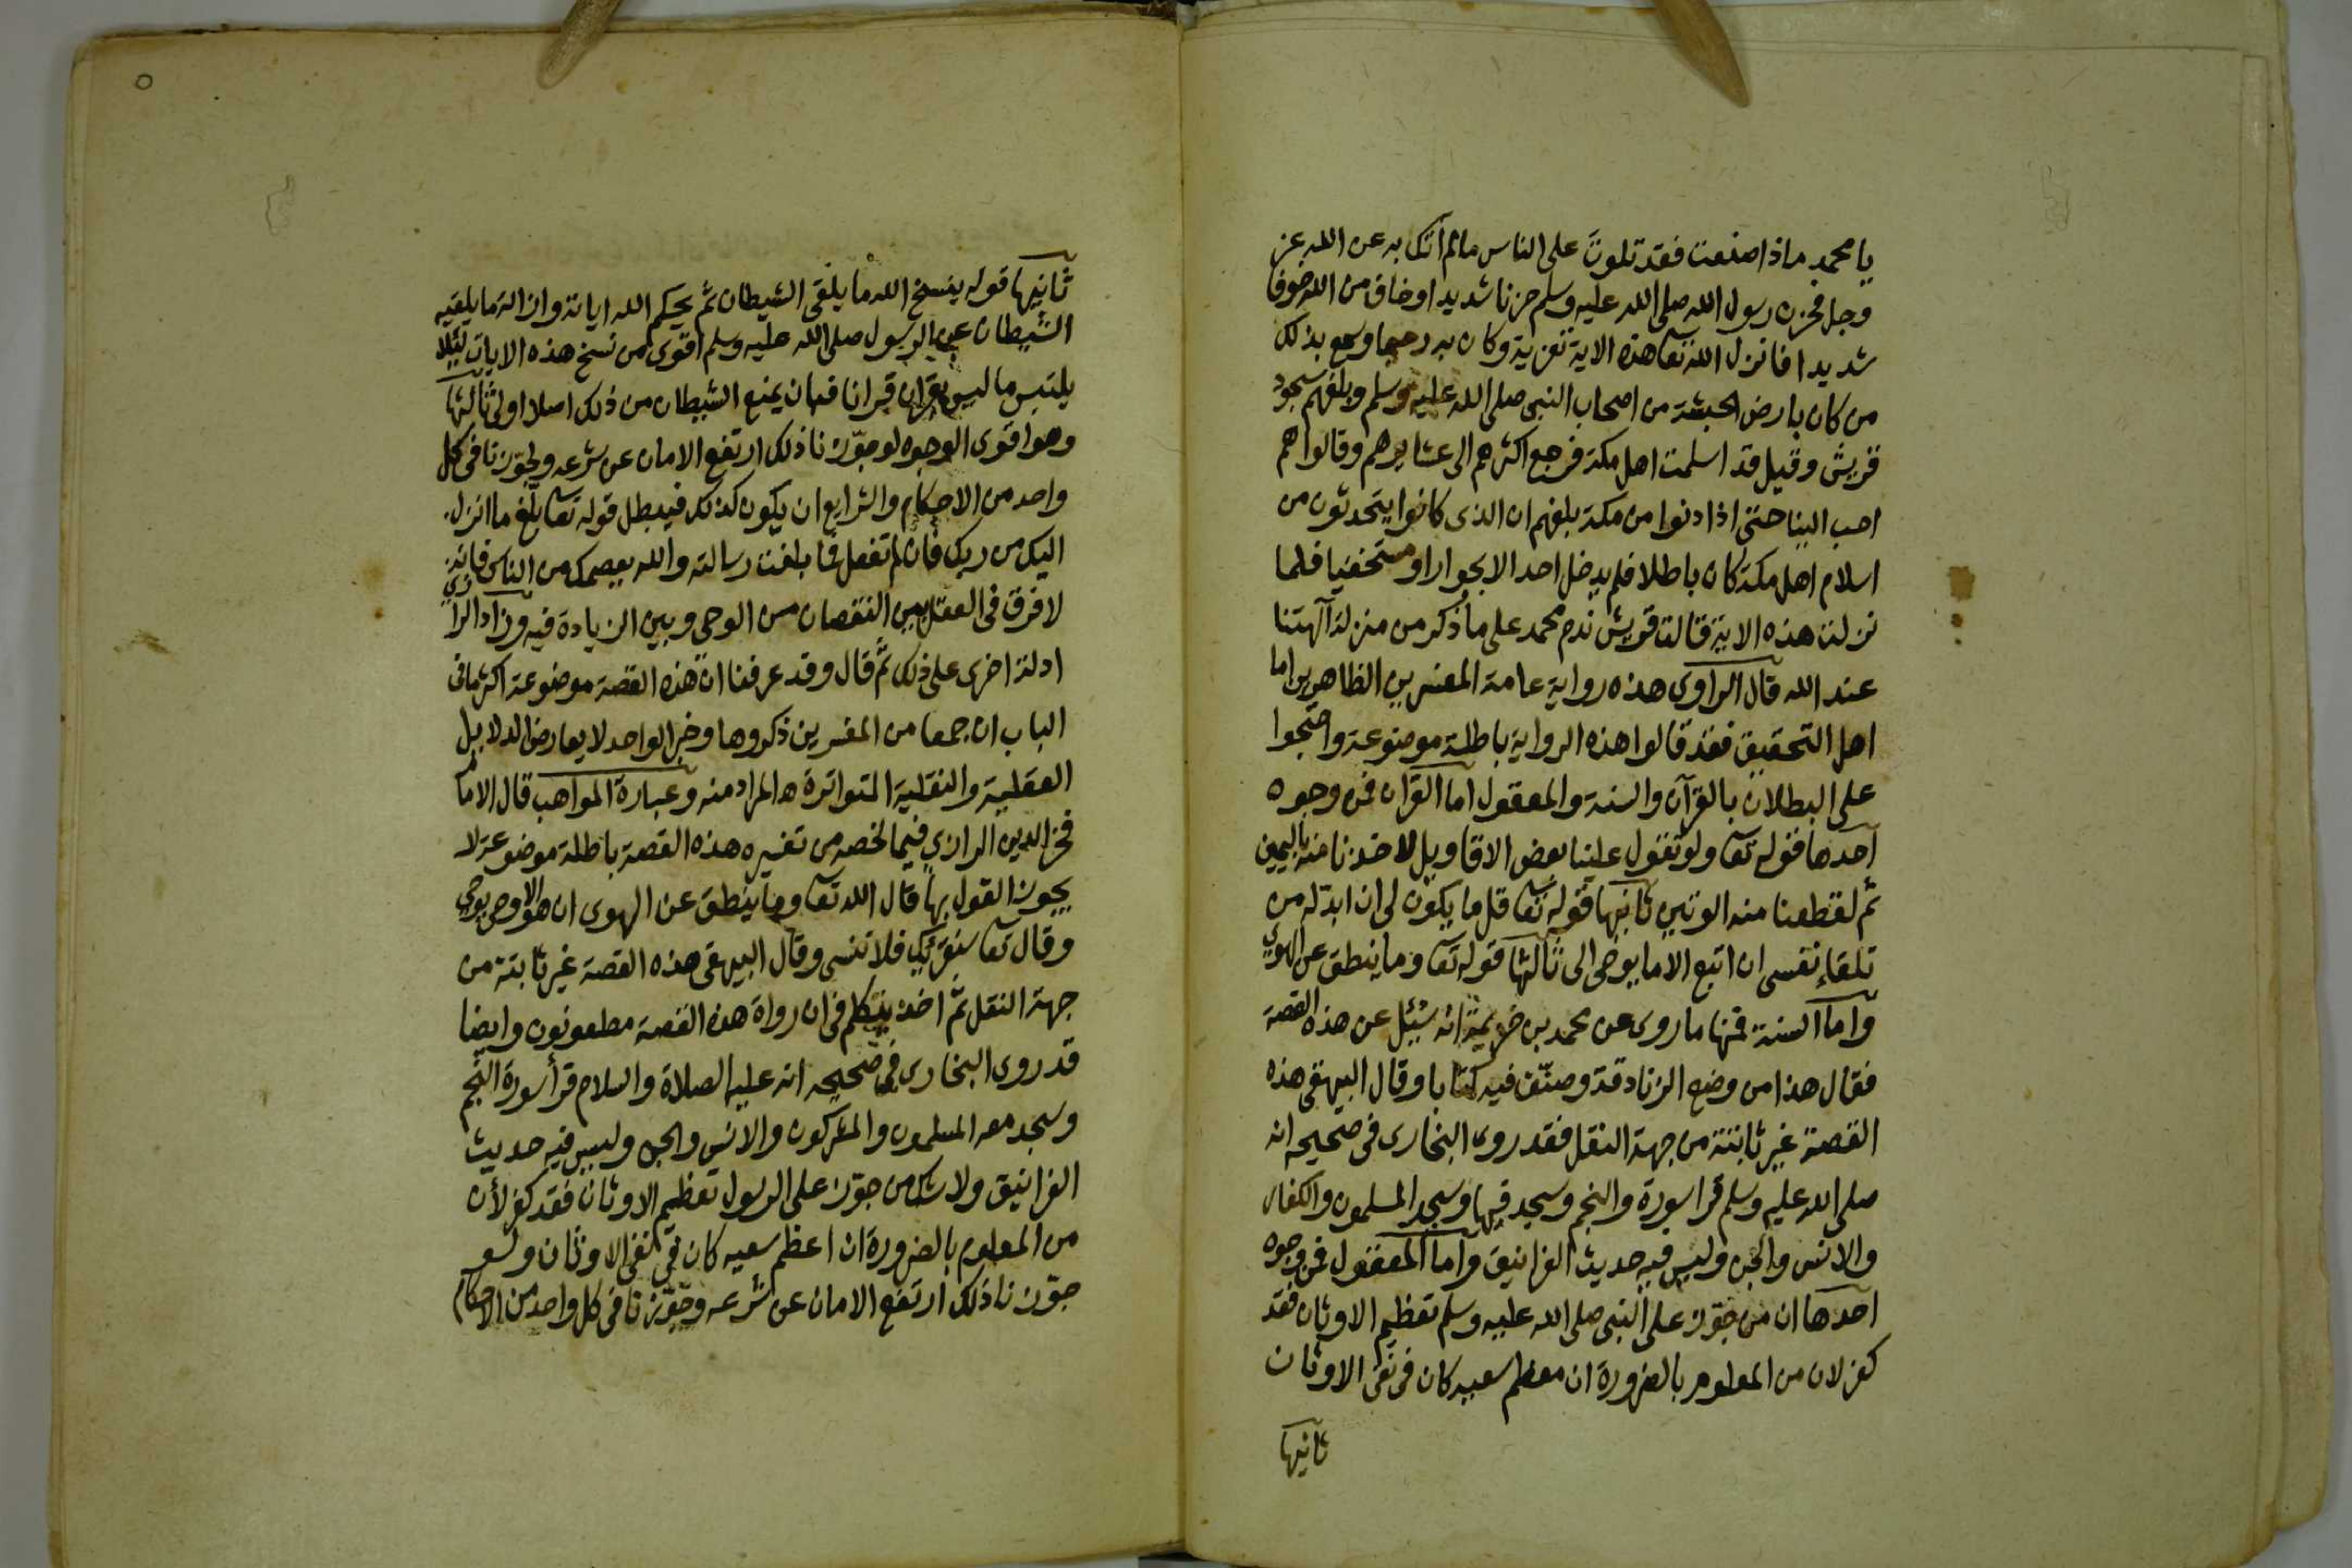 يا محمد ماذا صنعت فقد تلوت على الناس مالم آتك به عن الله عز
وجل فحزن رسول الله صلى الله عليه وسلم حزنا شديدا وخاف من الله خوفا
شديدا فانزل الله تعا هذه الاية تعزية وكان به رحيما وسمع بذلك
من كان بارض الحبشة من اصحاب النبى صلى الله عليه وسلم وبلغهم سجود
قريش وقيل قد اسلمت اهل مكة فرجع اكثرهم الى عشايرهم وقالوا هم
احب الينا حتى اذا دنوا من مكة بلغهم ان الذى كانوا يتحدثون من
اسلام اهل مكة كان باطلا فلم يدخل احد الا بجوار او مستخفيا فلما
نزلت هذه الاية قالت قريش ندم محمد على ما ذكر من منزلة آلهتنا
عند الله قال الراوى هذه رواية عامة المفسرين الظاهرين اما
اهل التحقيق فقد قالوا هذه الرواية باطلة موضوعة واحتجوا
على البطلان بالقرآن والسنة والمعقول اما القران فمن وجوه
احدها قوله تعا ولو تقول علينا بعض الاقاويل لاخذنا منه باليمين
ثم لقطعنا منه الوتين ثانيها قوله تعا قل ما يكون لى ان ابدّله من
تلقاء نفسى ان اتبع الا ما يوحى الى ثالثها قوله تعا وما ينطق عن الهوى
واما السنة فمنها ما روى عن محمد بن خزيمة انه سئل عن هذه القصة
فقال هذا من وضع الزنادقة وصنّف فيه كتابا وقال البيهقى هذه
القصة غير ثابتة من جهة النقل فقد روى البخارى فى صحيحه انه
صلى الله عليه وسلم قرا سورة والنجم وسجد فيها وسجد المسلمون والكفار
والانس والجن وليس فيه حديث الغرانيق واما المعقول فمن وجوه
احدها ان من جوّز على النبى صلى الله عليه وسلم تعظيم الاوثان فقد
كفر لان من المعلوم بالضرورة ان معظم سعيه كان فى نفى الاوثان
ثانيها
ثانيها قوله ينسخ الله ما يلقى الشيطان ثم يحكم الله اياته وازالة ما يلقيه
الشيطان عن الرسول صلى الله عليه وسلم اقوى من نسخ هذه الايات لئلا
يلتبس ما ليس بقران قرانا فبان يمنع الشيطان من ذلك اصلا اولى ثالثها
وهو اقوى الوجوه لو جوّزنا ذلك ارتفع الامان عن شرعه ولجوّزنا فى كل
واحد من الاحكام والشرايع ان يكون كذلك فيبطل قوله تعا بلّغ ما انزل
اليك من ربك فان لم تفعل فما بلغت رسالته والله يعصمك من الناس فانه
لا فرق فى العقل بين النقصان من الوحى وبين الزيادة فيه وزاد الرازي
ادلة اخرى على ذلك ثم قال وقد عرفنا ان هذه القصة موضوعة اكثر ما فى
الباب ان جمعا من المفسرين ذكروها وخبر الواحد لا يعارض الدلايل
العقلية والنقلية المتواترة ه المراد منه وعبارة المواهب قال الامام
فخر الدين الرازي فيما لخصه من تفسيره هذه القصة باطلة موضوعة لا
يجوز القول بها قال الله تعا وما ينطق عن الهوى ان هو الا وحى يوحى
وقال تعا سنقرئك فلا تنسى وقال البيهقى هذه القصة غير ثابتة من
جهة النقل ثم اخذ يتكلم فى ان رواة هذه القصة مطعونون وايضا
قد روى البخارى فى صحيحه انه عليه الصلاة والسلام قرأ سورة النجم
وسجد معه المسلمون والمشركون والانس والجن وليس فيه حديث
الغرانيق ولا شك من جوّز على الرسول تعظيم الاوثان فقد كفر لأن
من المعلوم بالضرورة ان اعظم سعيه كان فى نفى الاوثان ولو
جوّزنا ذلك ارتفع الامان عن شرعه وجوّزنا فى كل واحد من الاحكام